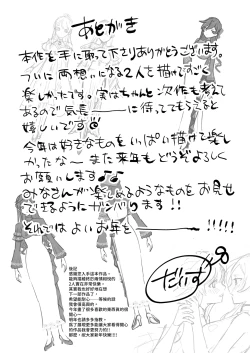 あとがき
本作を手に取って下さりありがとうございます。
ついに両想いになる2人を描けてすごく
楽しかったです。実はちゃんと次作も考えて
あるので気長ーーーに待っててもらえると
嬉しいです
今年は好きなものをいっぱい描けて楽し
かったな〜 また来年もどうぞよろしく
お願いします♪♪
みなさんが楽しんでもらえるようなものをお見せ
できるようにガンバります!!
それでは よいお年をーー!!!!!
だいず
後記
感謝您入手這本作品。
能夠描繪終於兩情相悅的
2人實在非常快樂。
其實我也好好地在想
下一部作品了，
希望能耐心——等候的話
我會很高興的。
今年畫了很多喜歡的東西真的很
開心～
明年也請多多指教。
為了讓場更多能讓大家看得開心
的作品我會加油的！
那麼，祝大家新年快樂！！